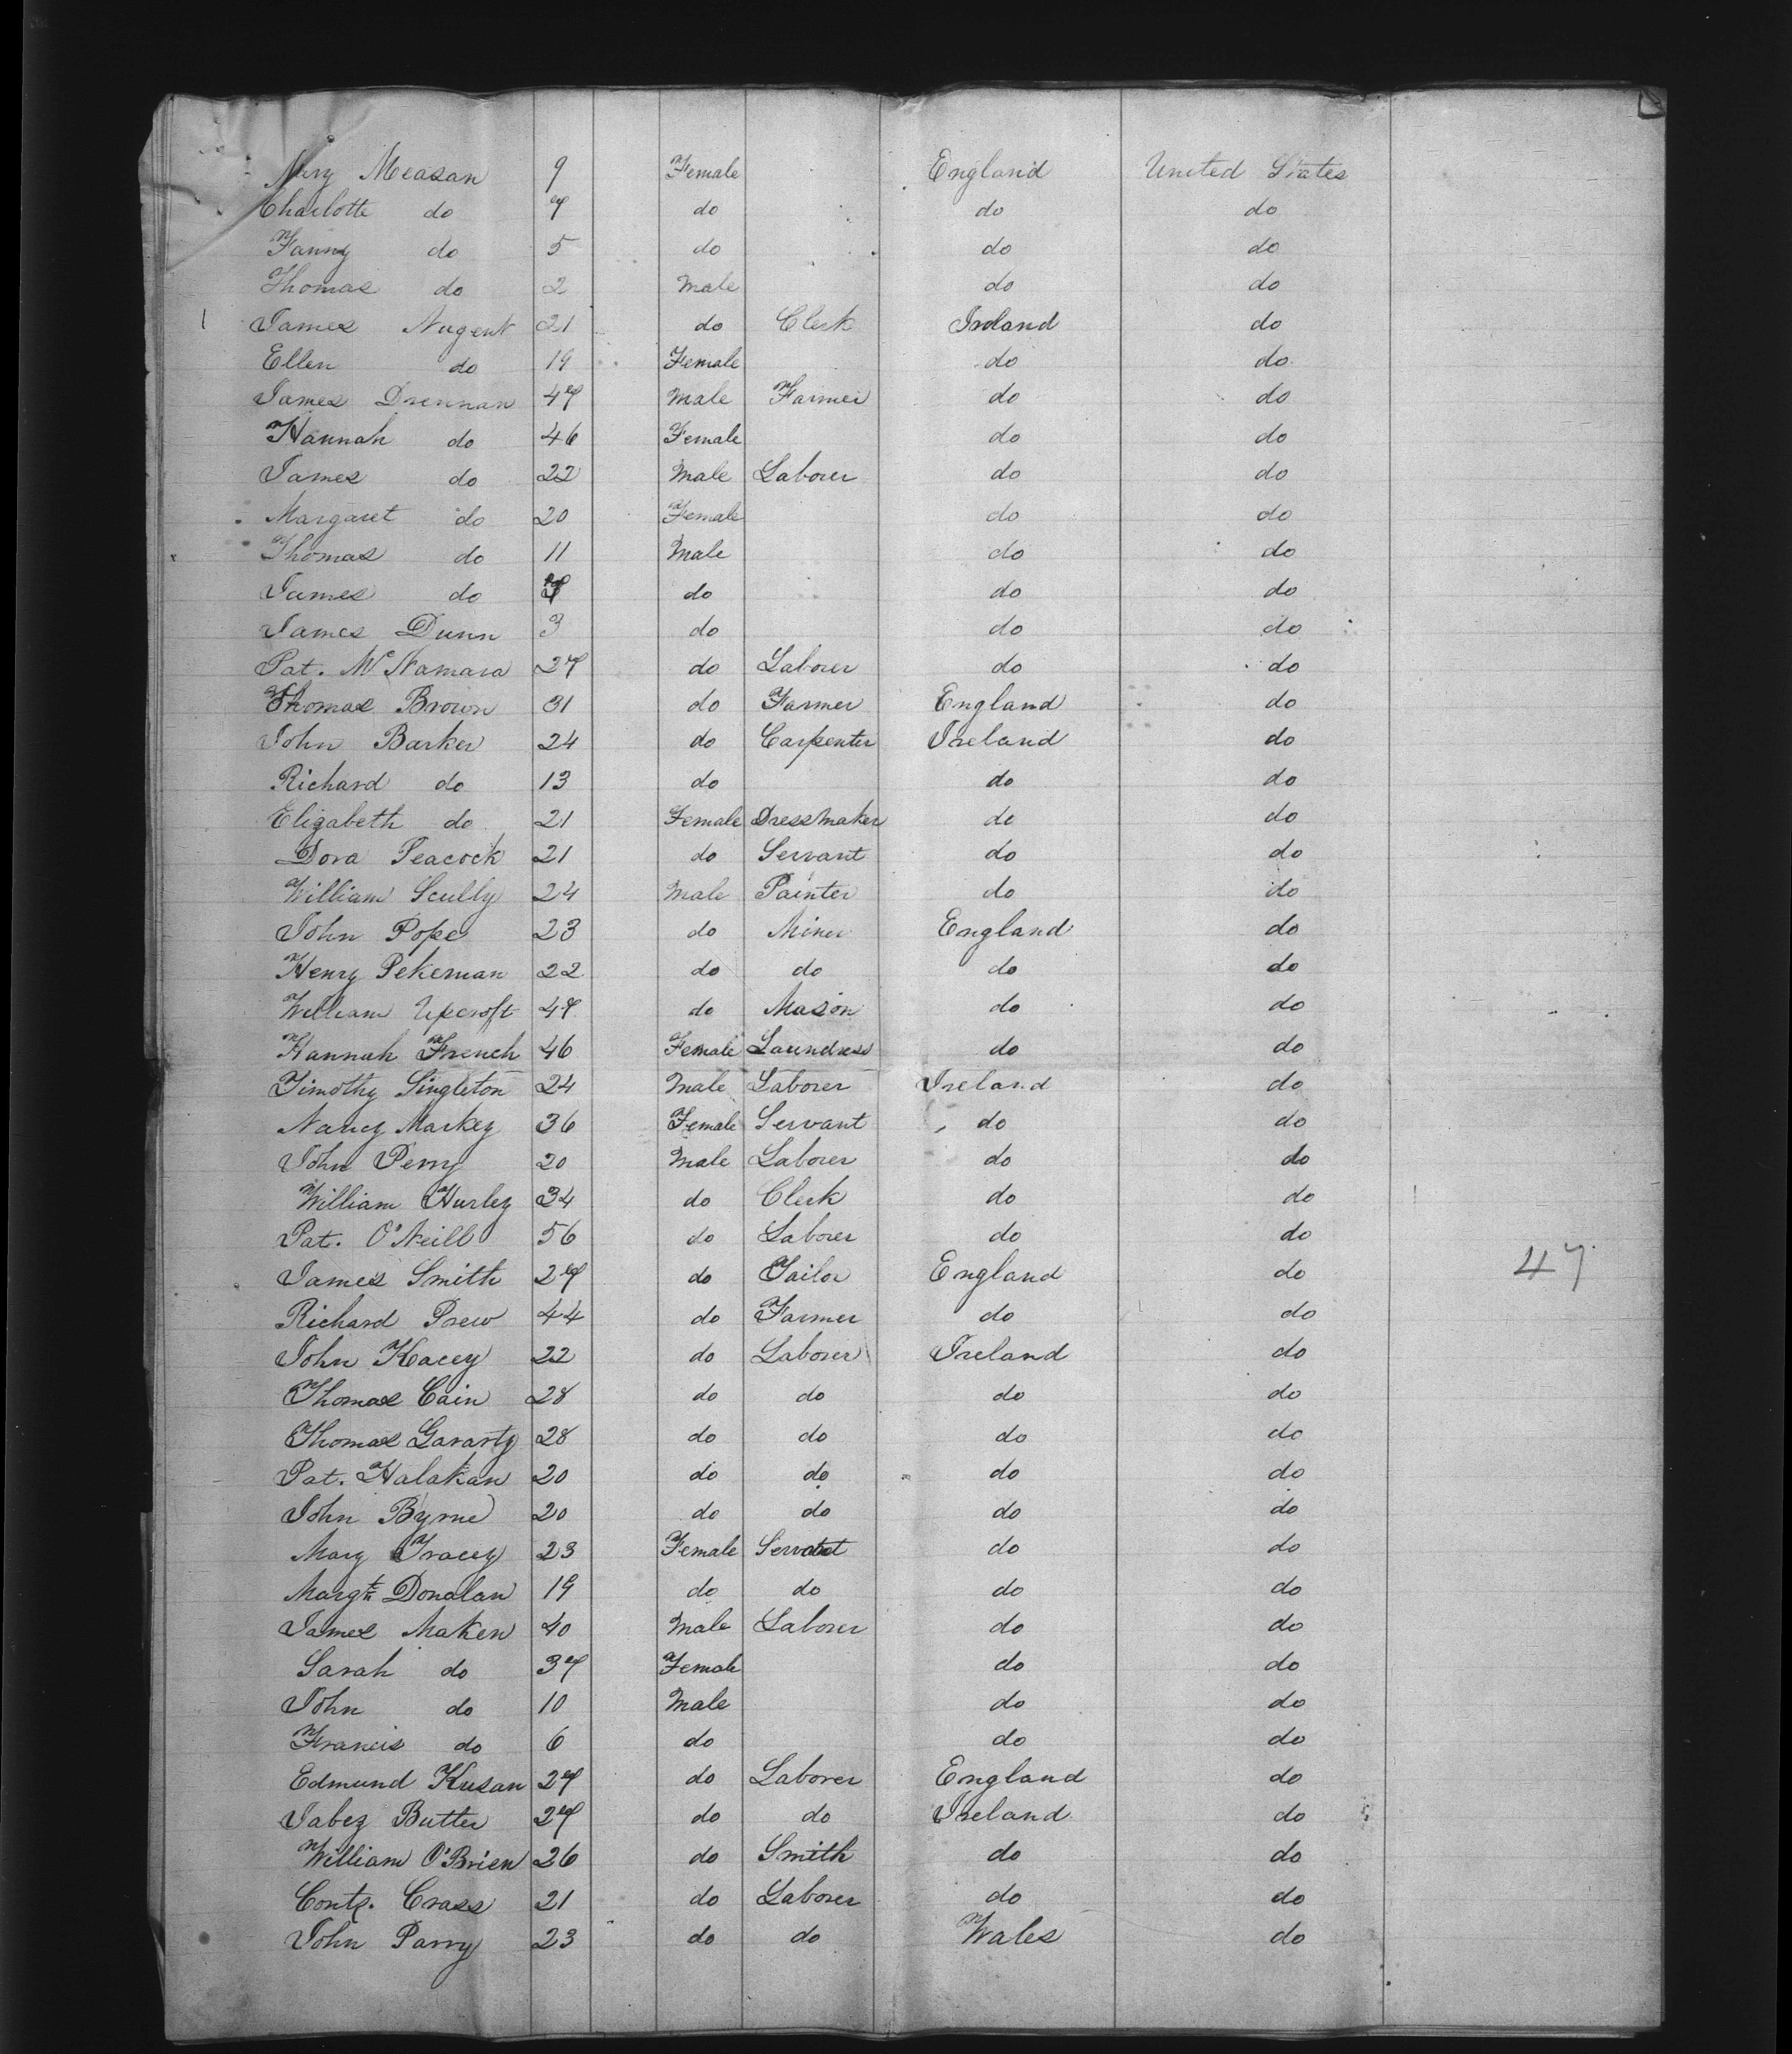 Mary Measan 9 Female England United States
Charlotte do 7 do do do
Fanny do 5 do do do
Thomas do 2 Male do do
James Nugent 21 do Clerk Ireland do
Ellen do 19 Female do do
James Drennan 47 Male Farmer do do
Hannah do 46 Female do do
James do 22 Male Laborer do do
Margaret do 20 Female do do
Thomas do 11 Male do do
James do do do do
James Dunn 3 do do do
Pat. McNamara 27 do Laborer do do
Thomas Brown 31 do Farmer England do
John Barker 24 do Carpenter Ireland do
Richard do 13 do do do
Elizabeth do 21 Female Dressmaker do do
Dora Peacock 21 do Servant do do
William Scully 24 Male Painter do do
John Pope 23 do Miner England do
Henry Pekeman 22 do do do do
William Upcroft 47 do Mason do do
Hannah French 46 Female Laundress do do
Timothy Singleton 24 Male Laborer Ireland do
Nancy Markey 36 Female Servant do do
John Perry 20 Male Laborer do do
William Hurley 34 do Clerk do do
Pat. O'Neill 56 do Laborer do do
James Smith 27 do Tailor England do 47
Richard Prew 44 do Farmer do do
John Kacey 22 do Laborer Ireland do
Thomas Cain 28 do do do do
Thomas Gararty 28 do do do do
Pat. Halakan 20 do do do do
John Byrne 20 do do do do
Mary Tracey 23 Female Servant do do
Margt Donalan 19 do do do do
James Maken 40 Male Laborer do do
Sarah do 37 Female do do
John do 10 Male do do
Francis do 6 do do do
Edmund Kusan 27 do Laborer England do
Jabez Butter 27 do do Ireland do
William O'Brien 26 do Smith do do
Crass 21 do Laborer do do
John Parry 23 do do Wales do